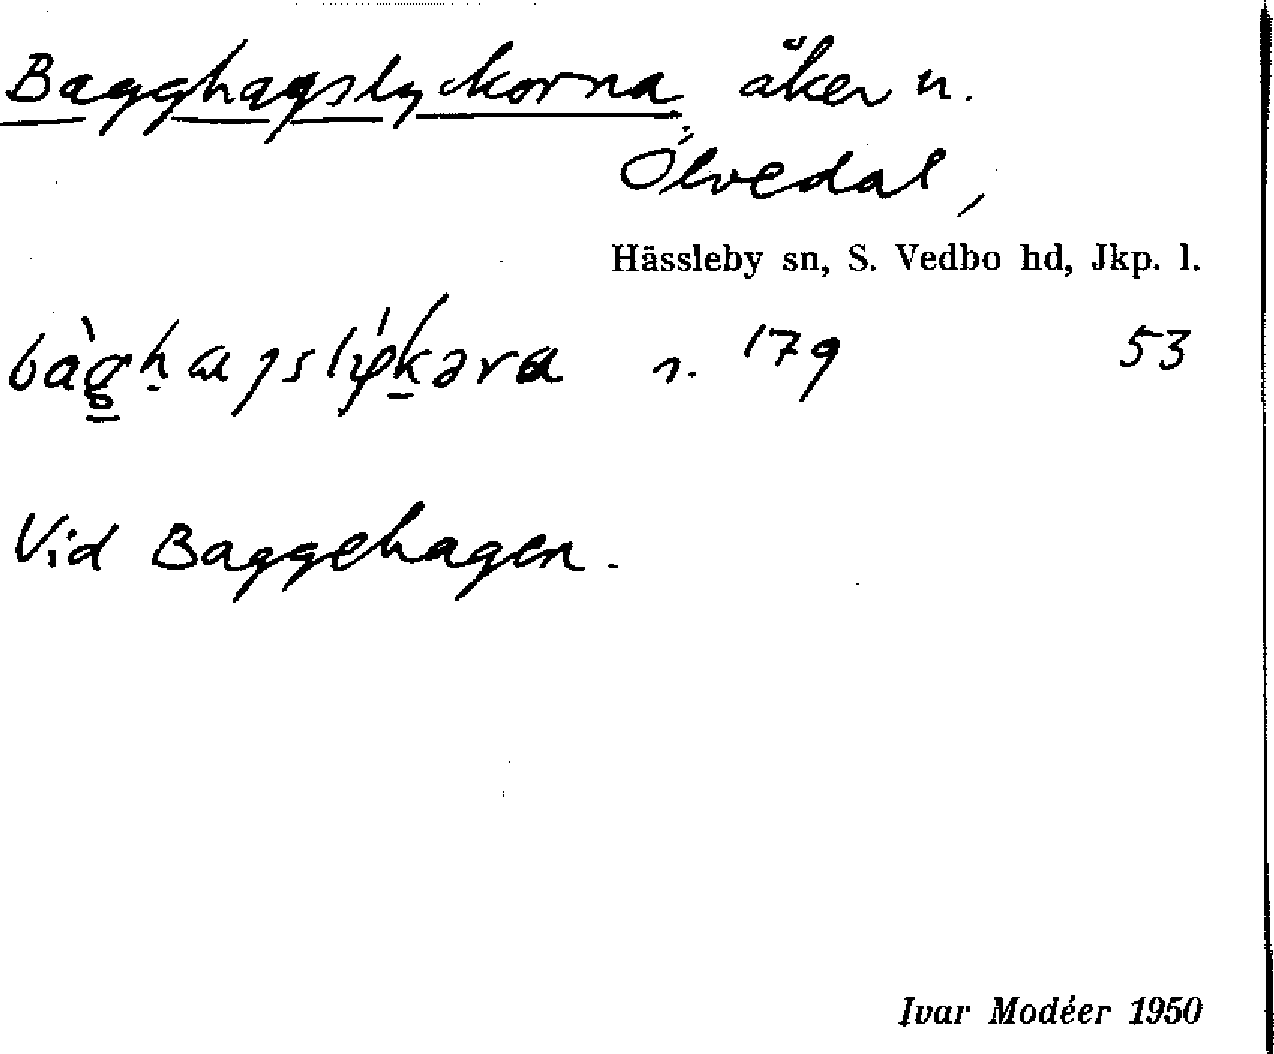 Bagghagslyckorna åker u.
Ölvedal,
Hässleby sn, S. Vedbo hd, Jkp. l.
n. 179 53
Vid Baggehagen.
Ivar Modéer 1950